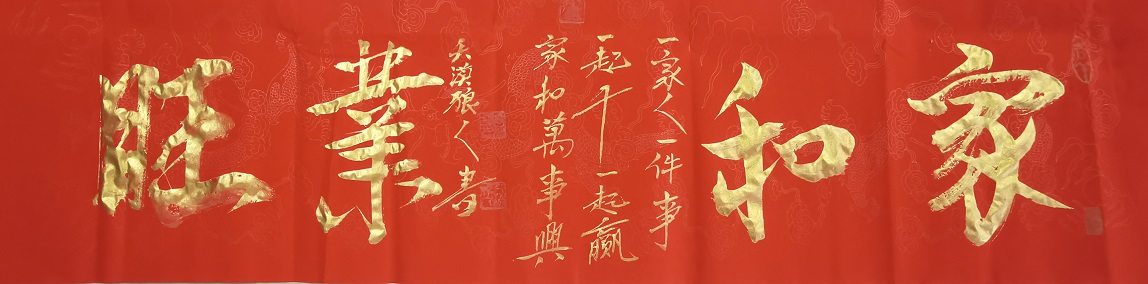 家和業旺
一家人一件事
一起干一起赢
家和萬事興
大漠狼人書